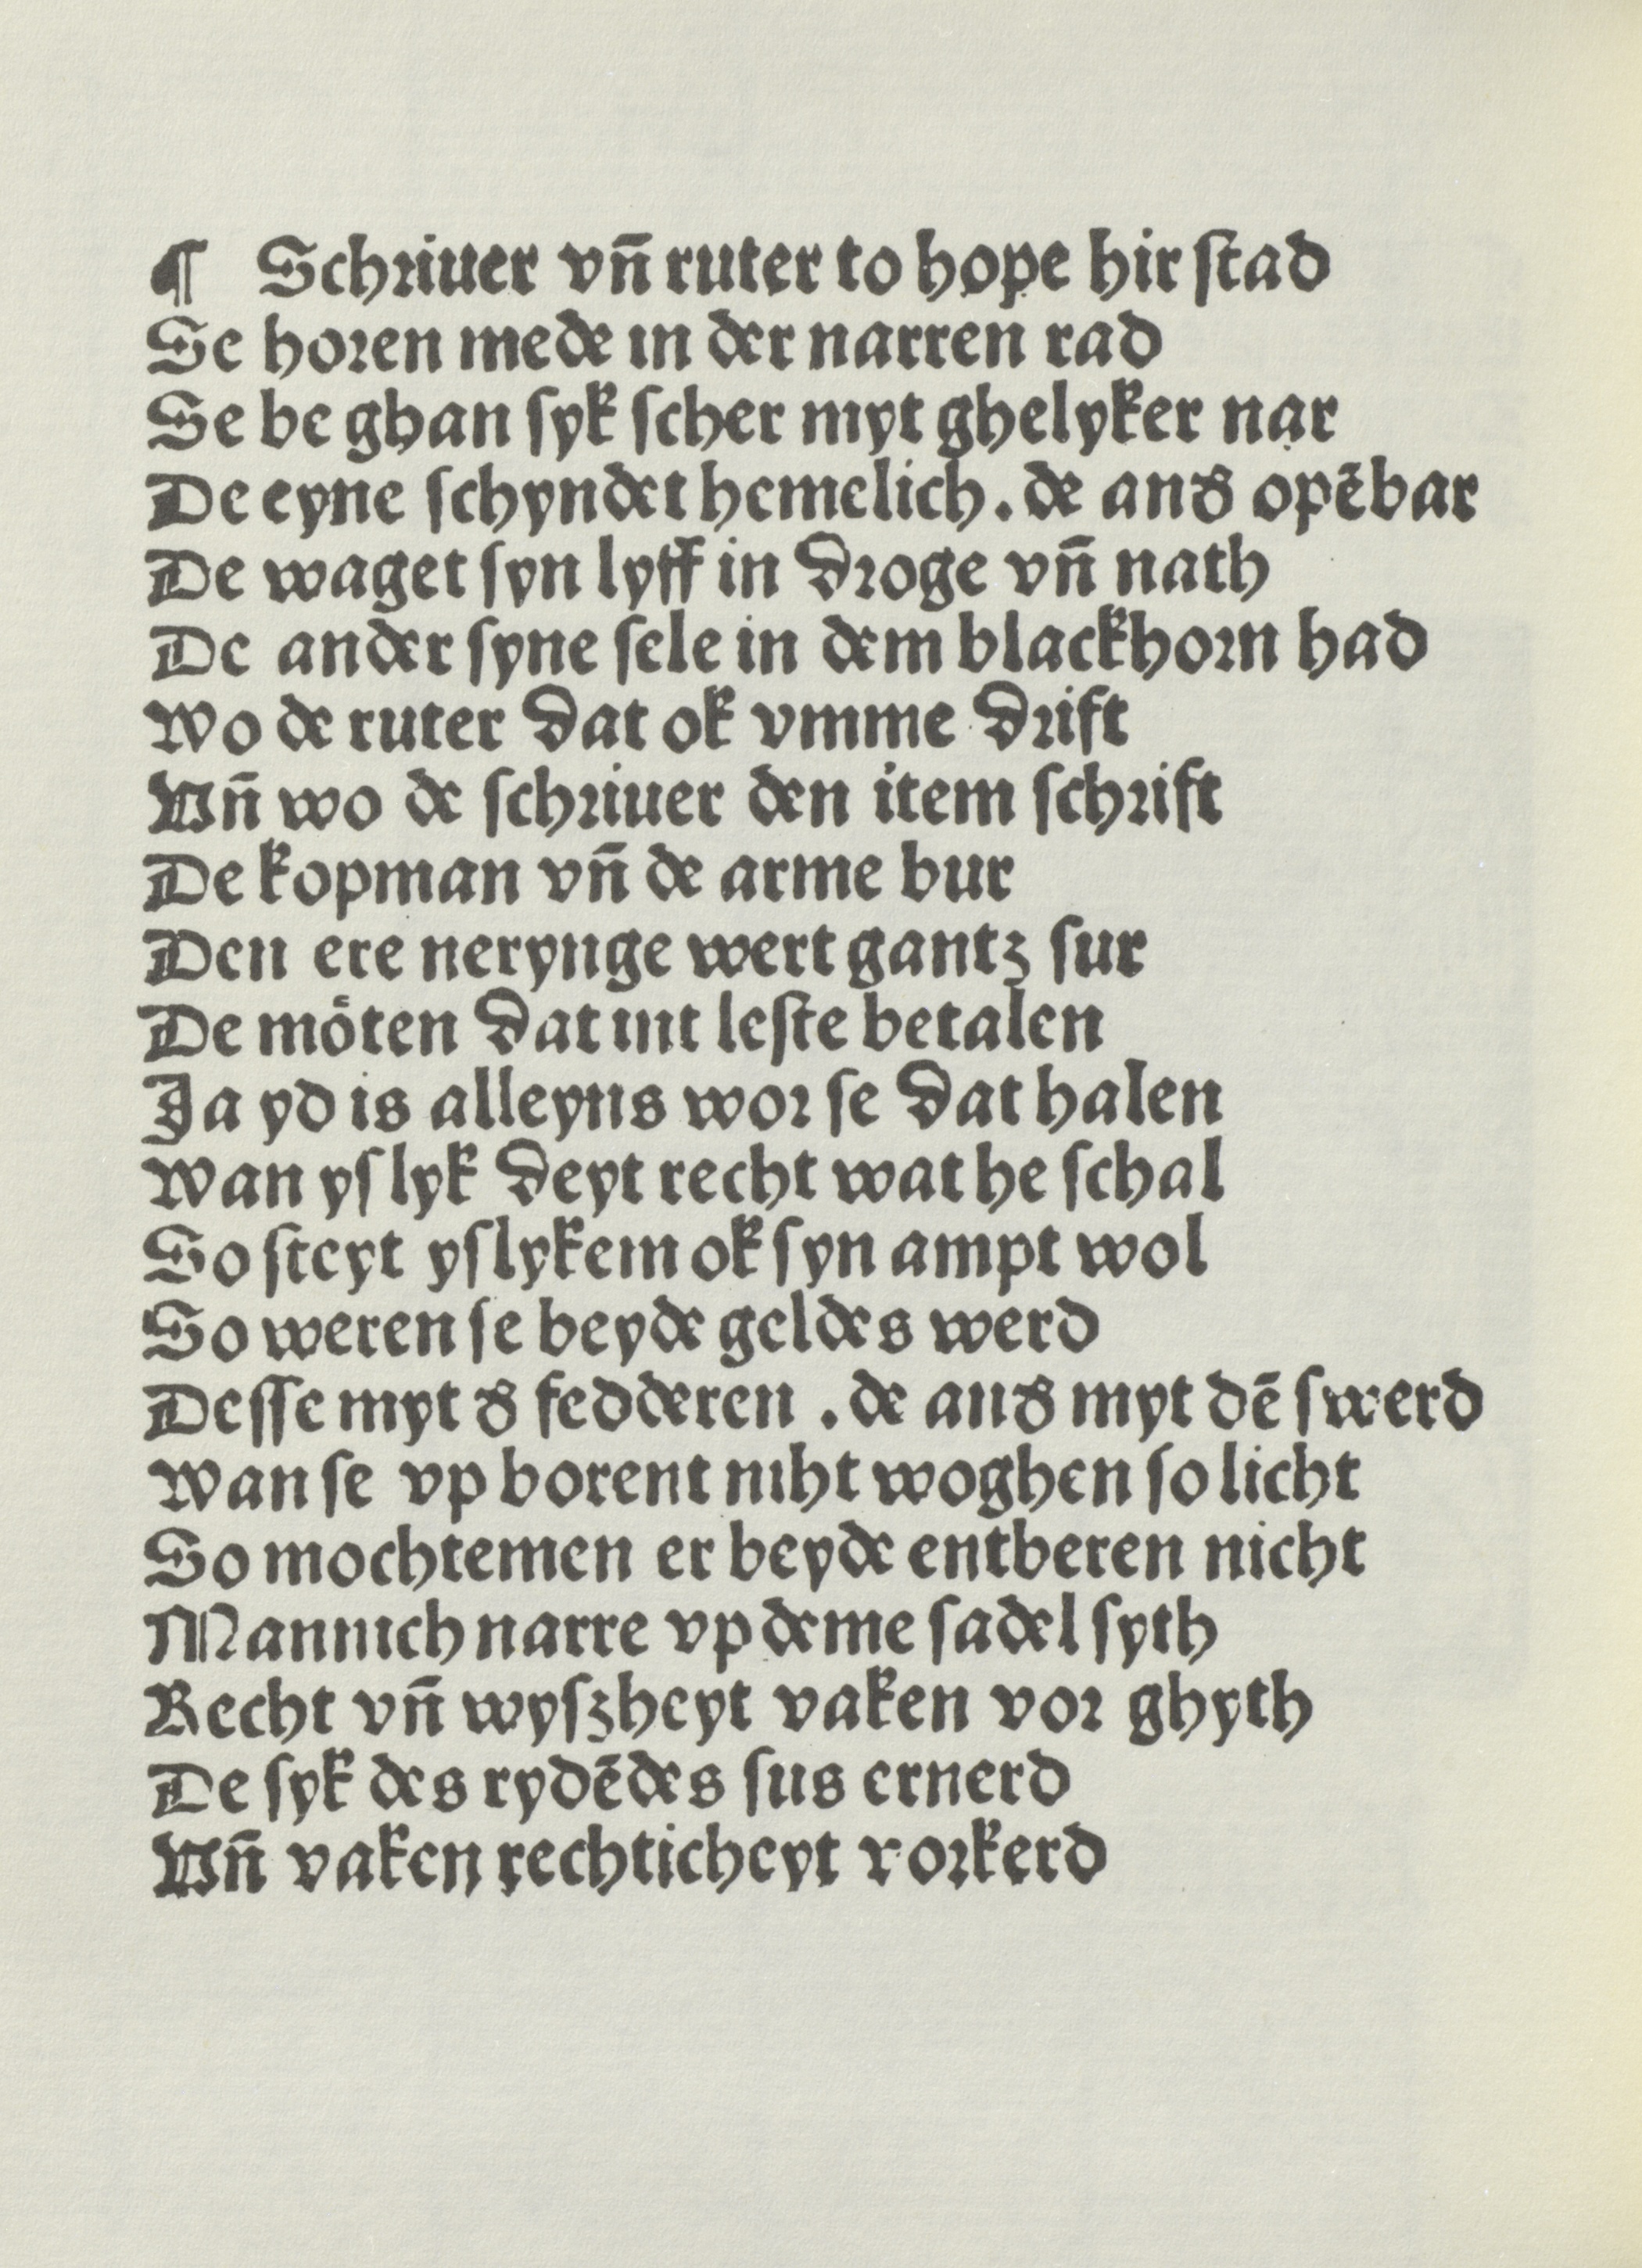 ¶ Schriuer vn̄ ruter to hope hir ſtad
Se horen mede in der narren rad
Se be ghan ſyk ſcher myt ghelyker nar
De eyne ſchyndet hemelich . de and̓ opēbar
De waget ſyn lyff in droge vn̄ nath
De ander ſyne ſele in dem blackhorn had
Wo de ruter dat ok vmme drift
Vn̄ wo de ſchriuer den item ſchrift
De kopman vn̄ de arme bur
Den ere nerynge wert gantz ſur
De moͤten dat int leſte betalen
Ja yd is alleyns wor ſe dat halen
Wan yſlyk deyt recht wat he ſchal
So ſteyt yſlykem ok ſyn ampt wol
So weren ſe beyde geldes werd
Deſſe myt d̓ fedderen . de and̓ myt dē ſwerd
Wan ſe vp borent niht woghen ſo licht
So mochtemen er beyde entberen nicht
Mannich narre vp deme ſadel ſyth
Recht vn̄ wyſzheyt vaken vor ghyth
De ſyk des rydēdes ſus ernerd
Vn̄ vaken rechticheyt vorkerd